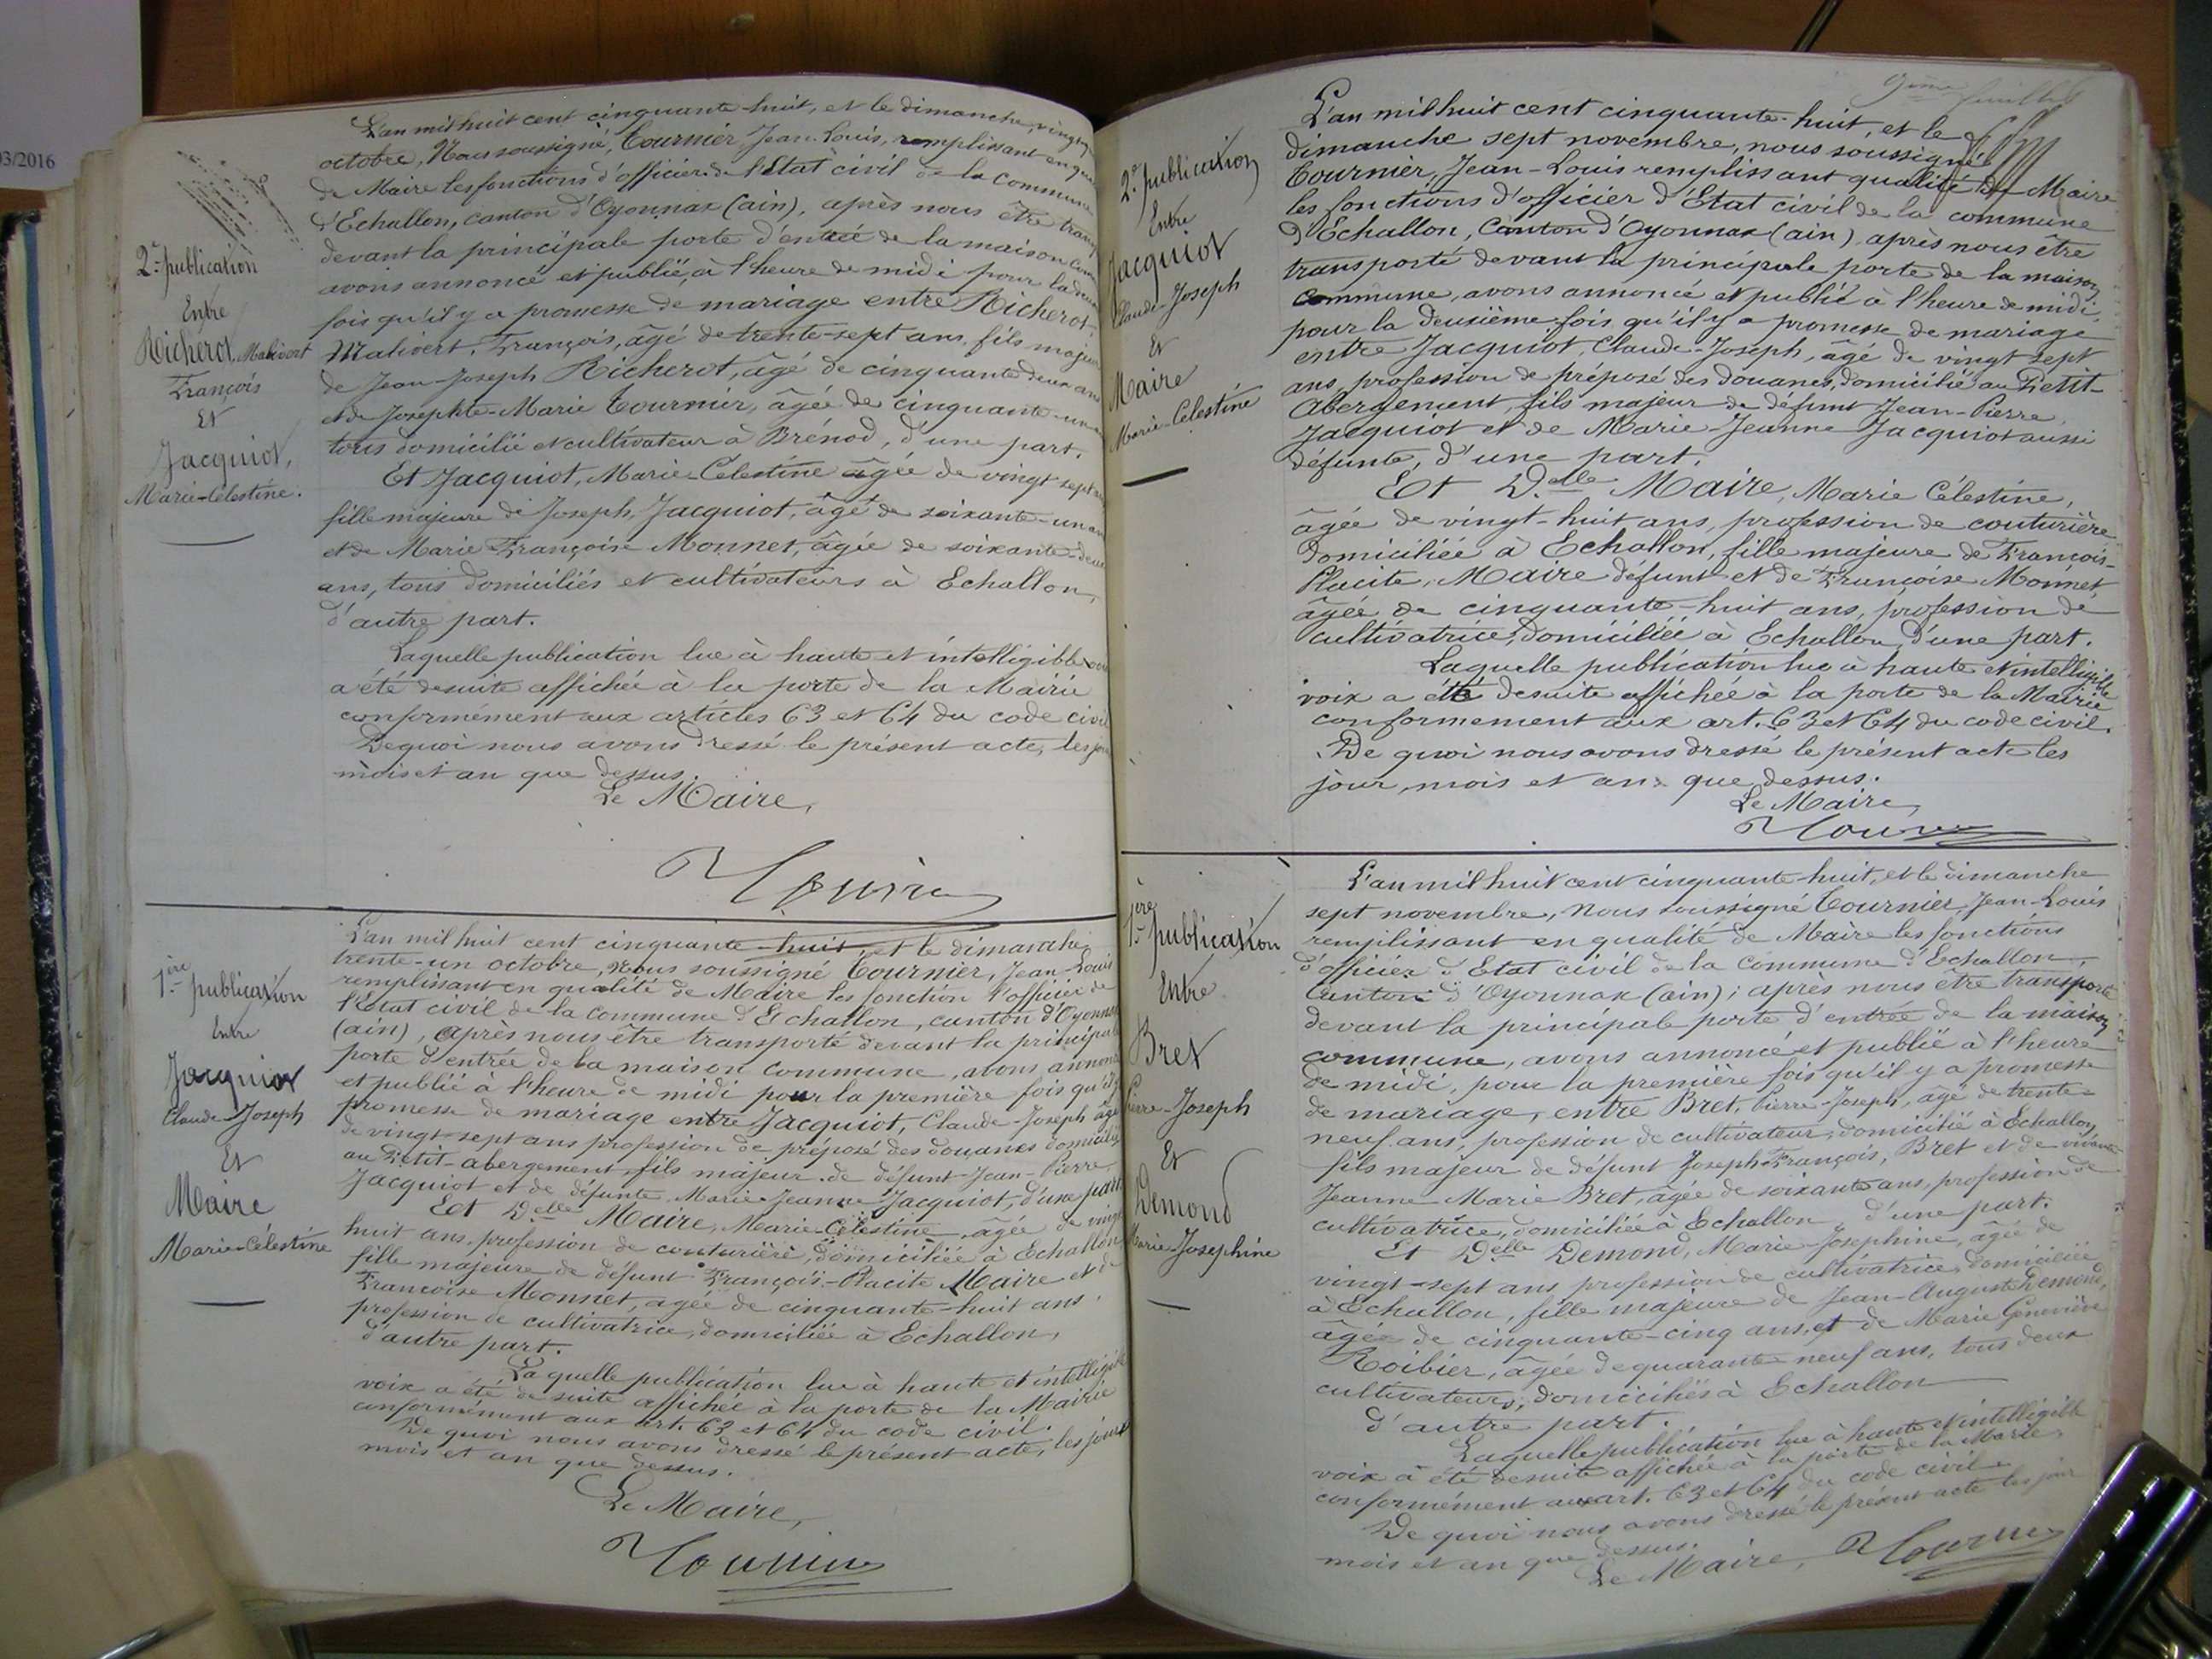 03/2016
2e publication
Entre
Richerot Malivert
François
Et
Jacquiot,
Marie-Célestine.
L'an mil huit cent cinquante-huit, et le dimanche, vingt
octobre, Nous soussigné, Tournier Jean-Louis, remplissant en qua
de Maire les fonctions d'officier de l'Etat civil de la commune
d'Echallon, canton d'Oyonnax (ain), après nous être trans
devant la principale porte d'entrée de la maison com
avons annoncé et publié, à l'heure de midi pour la deux
fois qu'il y a promesse de mariage entre Richerot-
Malivert, François, âgé de trente-sept ans, fils majeur
de Jean-Joseph Richerot, âgé de cinquante deux ans
et de Josephte-Marie Tournier, âgée de cinquante-un
tous domicilié et cultivateur à Brénod, d'une part.
Et Jacquiot, Marie-Célestine âgée de vingt sept
fille majeure de Joseph, Jacquiot, âgé de soixante-un an
et de Marie Françoise Monnet, âgée de soixante-deux
ans, tous domiciliés et cultivateurs à Echallon,
d'autre part.
Laquelle publication lue à haute et intelligible voix
a été desuite affichée à la porte de la Mairie
conformément aux articles 63 et 64 du code civil
Dequoi nous avons dressé le présent acte, les jour
mois et an que dessus.
Le Maire,
Tournier
1ère publication
Entre
Jacquiot
Claude-Joseph
Et
Maire
Marie-Célestine
L'an mil huit cent cinquante-huit, et le dimanche
trente-un octobre, Nous soussigné Tournier, Jean-Louis
remplissant en qualité de Maire les fonction l'officier de
l'Etat civil de la commune d'Echallon, canton d'Oyonnax
(ain), après nous être transporté devant la principale
porte d'entrée de la maison commune, avons annoncé
et publié à l'heure de midi pour la première fois qu'il y
promesse de mariage entre Jacquiot, Claude-Joseph âgé
de vingt-sept ans profession de préposé des douanes domicilié
au Petit-abergement, fils majeur de défunt Jean-Pierre
Jacquiot et de défunte Marie-Jeanne Jacquiot, d'une part
Et Delle Maire, Marie-Célestine, agée de vingt
huit ans, profession de couturière, domiciliée à Echallon
fille majeure de défunt François-Placite Maire et de
Francoise Monnet, agée de cinquante-huit ans
profession de cultivatrice, domiciliée à Echallon,
d'autre part.
Laquelle publication lue à haute et intelligible
voix a été de suite affichée à la porte de la Mairie
conformément aux art. 63 et 64 du code civil.
De quoi nous avons dressé le présent acte, les jour
mois et an que dessus.
Le Maire,
Tournier
9ème feuillet
2e publication
Entre
Jacquiot
Claude-Joseph
Et
Maire
Marie-Celestine
L'an mil huit cent cinquante-huit, et le
dimanche sept novembre, nous soussigné
Tournier, Jean-Louis remplissant qualité de Maire
les fonctions d'officier d'Etat civil de la commune
d'Echallon, Canton d'Oyonnax (ain) après nous être
transporté devant la principale porte de la maison
commune, avons annoncé et publié à l'heure de midi,
pour la deuxième fois qu'il y a promesse de mariage
entre Jacquiot, Claude-Joseph, âgé de vingt sept
ans, profession de préposé des douanes, domicilié au Petit-
Abergement, fils majeur de défunt Jean-Pierre
Jacquiot et de Marie-Jeanne Jacquiot aussi
défunte, d'une part.
Et Delle Maire, Marie Célestine,
âgée de vingt-huit ans, profession de couturière
domiciliée à Echallon, fille majeure de François-
Placite, Maire défunt et de Françoise Monnet,
âgée de cinquante-huit ans, profession de
cultivatrice, domiciliée à Echallon, d'une part.
Laquelle publication lue à haute et intelligible
voix a été desuite affichée à la porte de la Mairie
conformement aux art. 63 et 64 du code civil.
De quoi nous avons dressé le présent acte les
jour, mois et an que dessus.
Le Maire,
Tournier
1ère publication
Entre
Bret
Pierre-Joseph
Et
Demond
Marie-Josephine
L'an mil huit cent cinquante-huit, et le dimanche
sept novembre, Nous soussigné Tournier Jean-Louis
remplissant en qualité de Maire les fonctions
d'officier d'Etat civil de la Commune d'Echallon,
Canton d'Oyonnax (ain); après nous être transporté
devant la principale porte d'entrée de la maison
commune, avons annoncé et publié à l'heure
de midi, pour la première fois qu'il y a promesse
de mariage, entre Bret, Pierre-Joseph, âgé de trente-
neuf ans, profession de cultivateur, domicilié à Echallon,
fils majeur de défunt Joseph-François, Bret et de vivante
Jeanne Marie Bret, agée de soixante ans, profession de
cultivatrice, domiciliée à Echallon, d'une part.
Et Delle Demond, Marie-Josephine, agée de
vingt-sept ans profession de cultivatrice, domiciliée
à Echallon, fille majeure de Jean-Auguste Demond,
âgée de cinquante-cinq ans, et de Marie Geneviève
Roibier, âgée de quarante neuf ans, tous deux
cultivateurs, domiciliés à Echallon
d'autre part.
Laquelle publication lue à haute et intelligible
voix à été desuite affichée à la porte de la Marie
conformément aux art. 63 et 64 du code civil.
De quoi nous avons dressé le présent acte les jour
mois et an que dessus.
Le Maire, Tournier